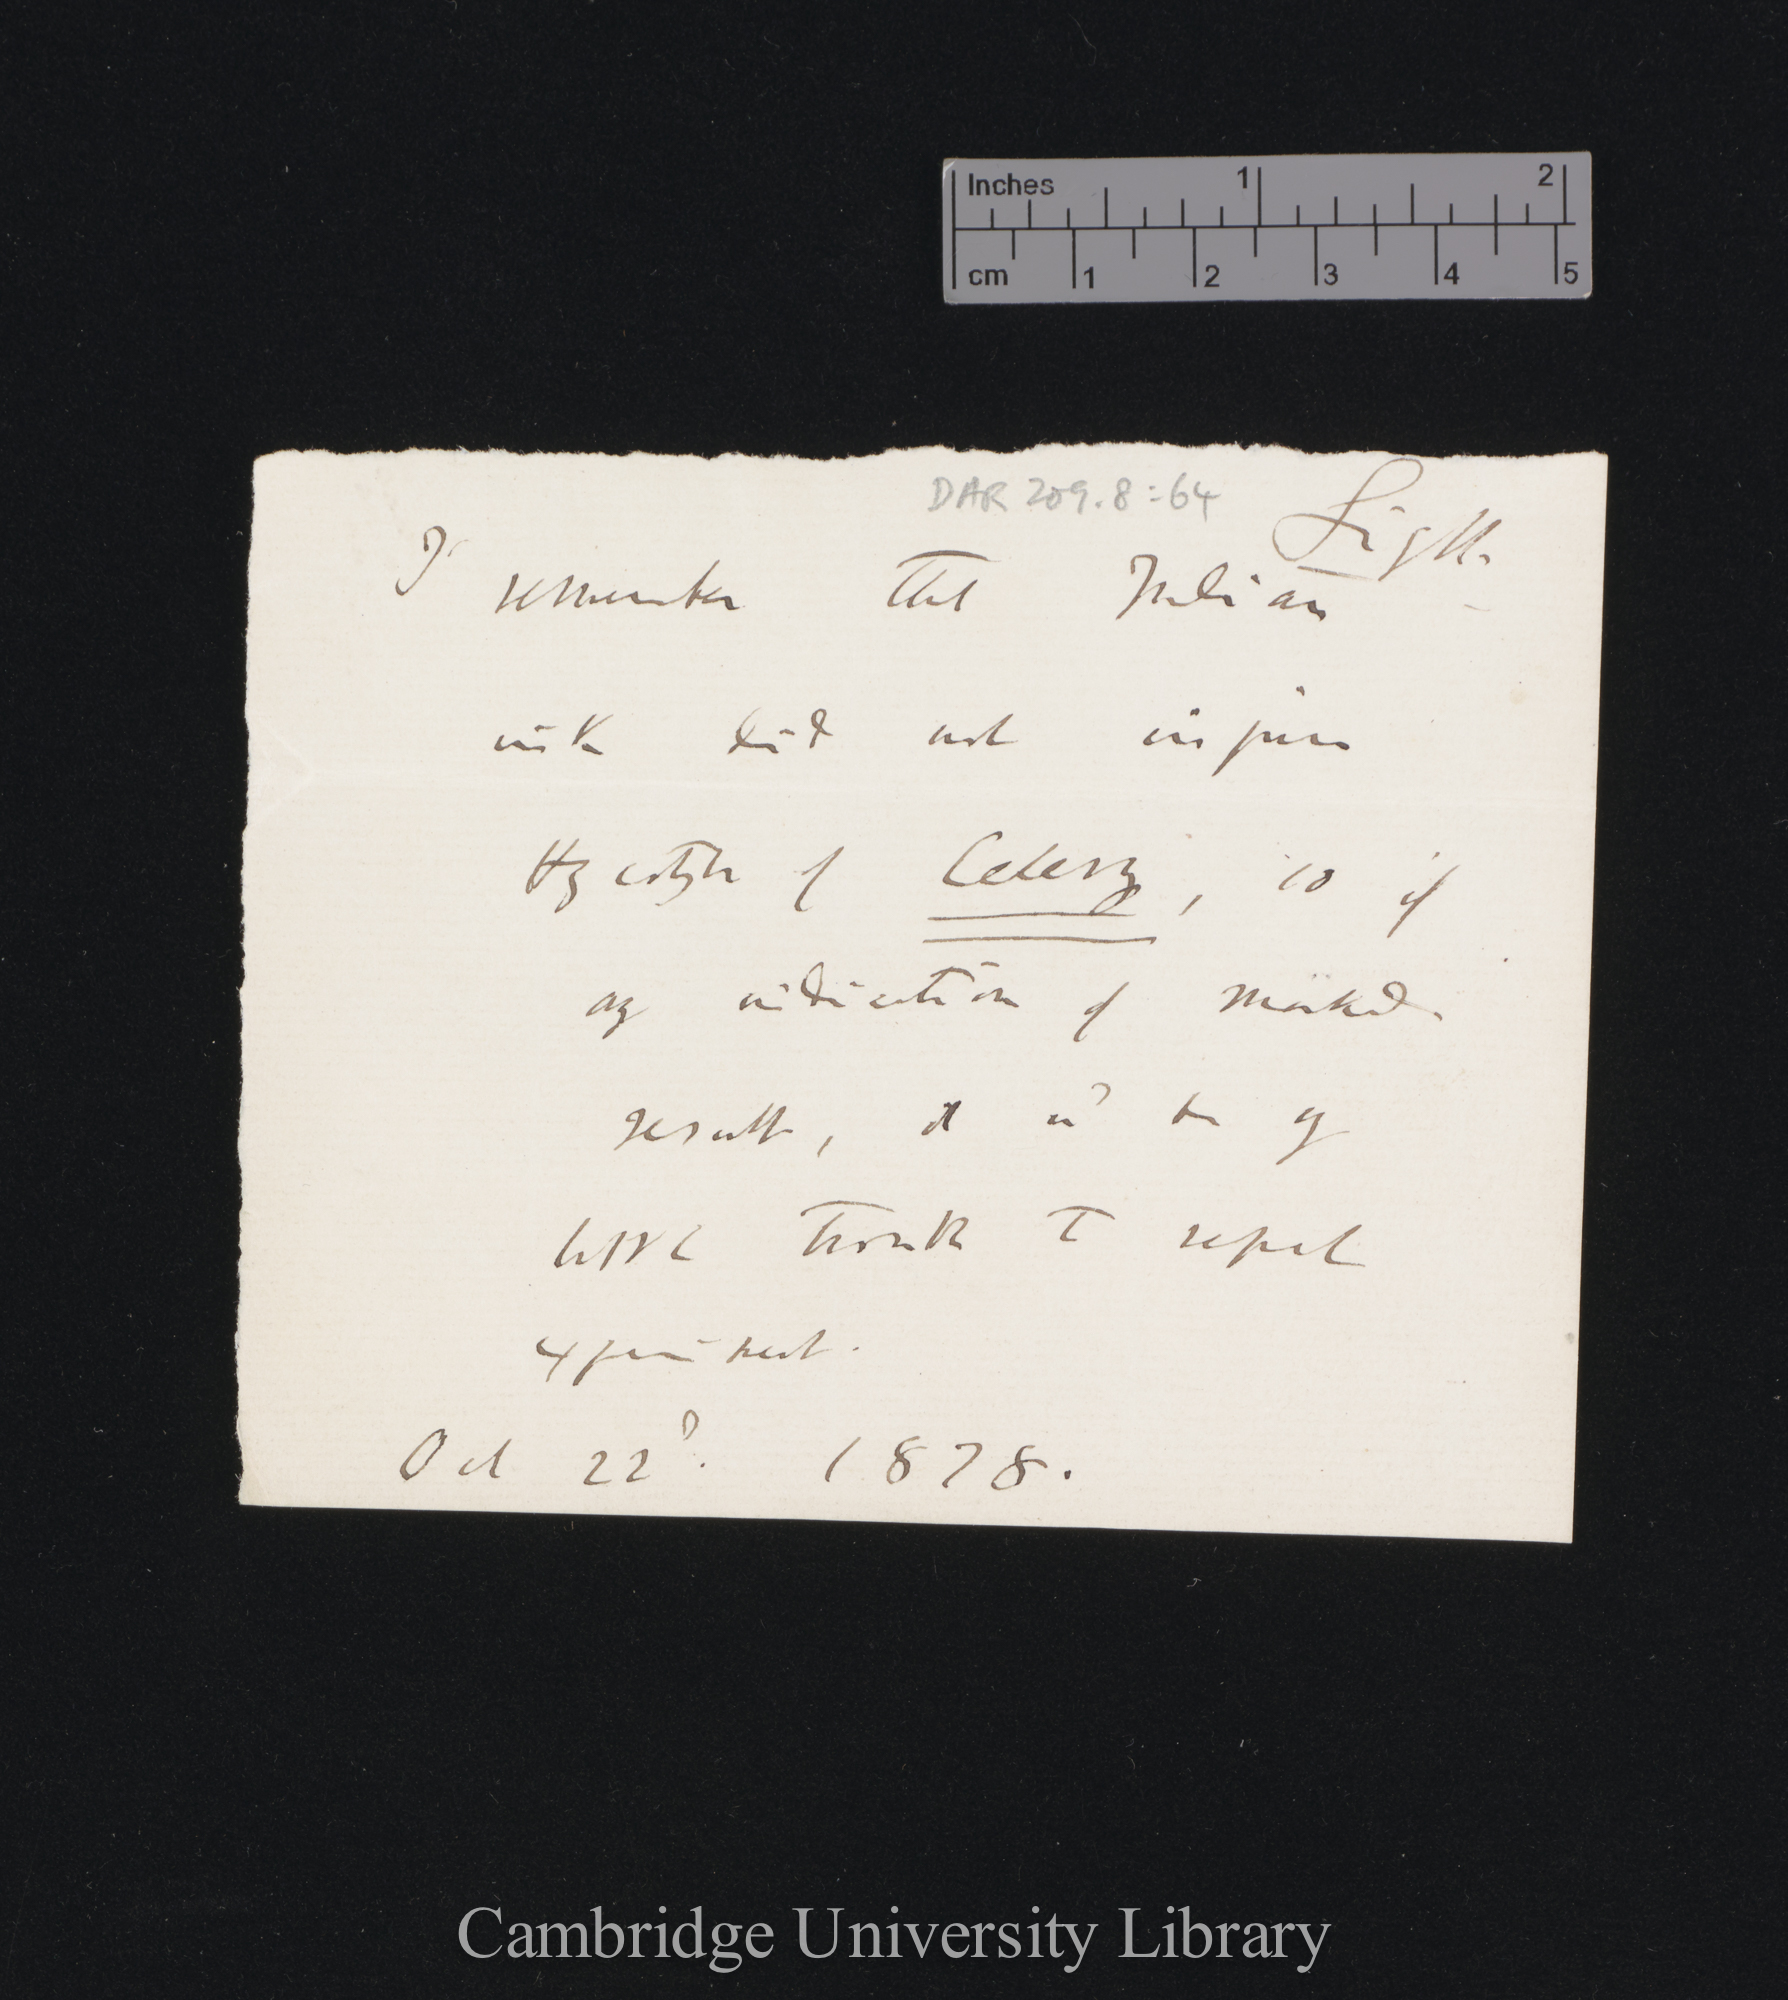 Inches 1 2
cm 1 2 3 4 5
DAR 209.8:64
Light
I remember that Indian
ink did not injure
Hycotyls of Celery, so if
any indication of marked
result, it wd be of
little trouble to repeat
experiment.
Oct 22d. 1878.
Cambridge University Library